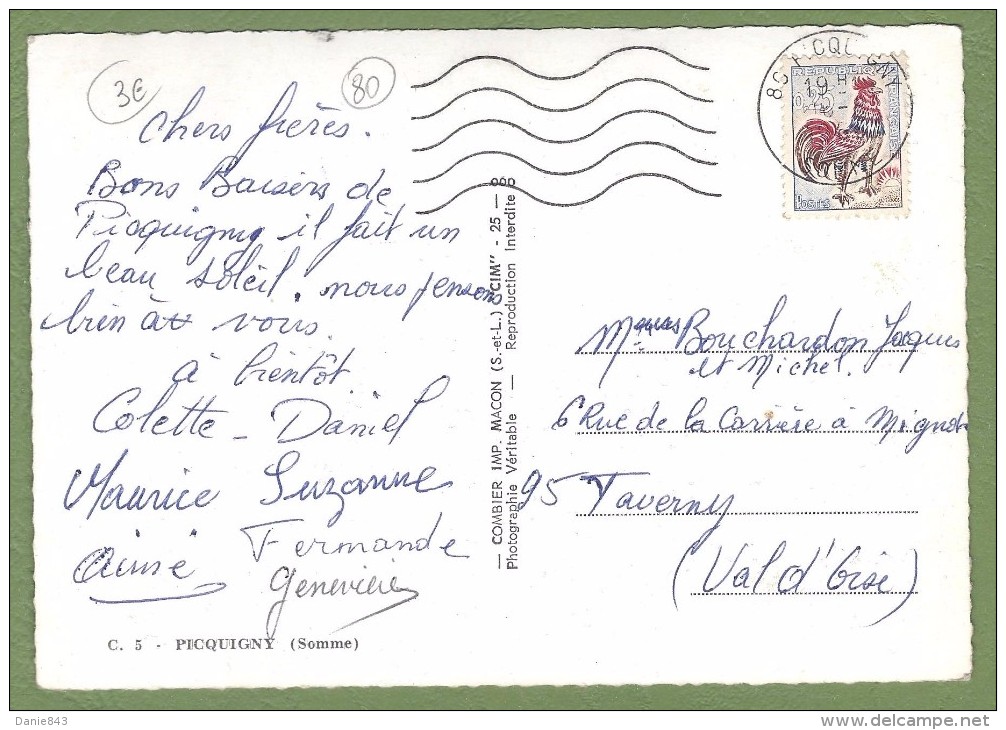 3€
80
80 PICQUIGNY
19 H
REPUBLIQUE
FRANÇAISE
0,25
POSTES
chers frères.
Bons Baisers de
Picquigny il fait un
beau soleil. nous pensons
bien à vous.
à bientôt
Colette - Daniel
Maurice Suzanne
Aimé Fernande
Geneviève
C. 5 - PICQUIGNY (Somme)
— COMBIER IMP. MACON (S.-et-L.) "CIM" - 25 —
Photographie Véritable — Reproduction Interdite
Bouchardon Jacques
et Michel.
6 Rue de la Carrière à Mignot
95 Taverny
(Val d'Oise)
Danie843
delcampe.net